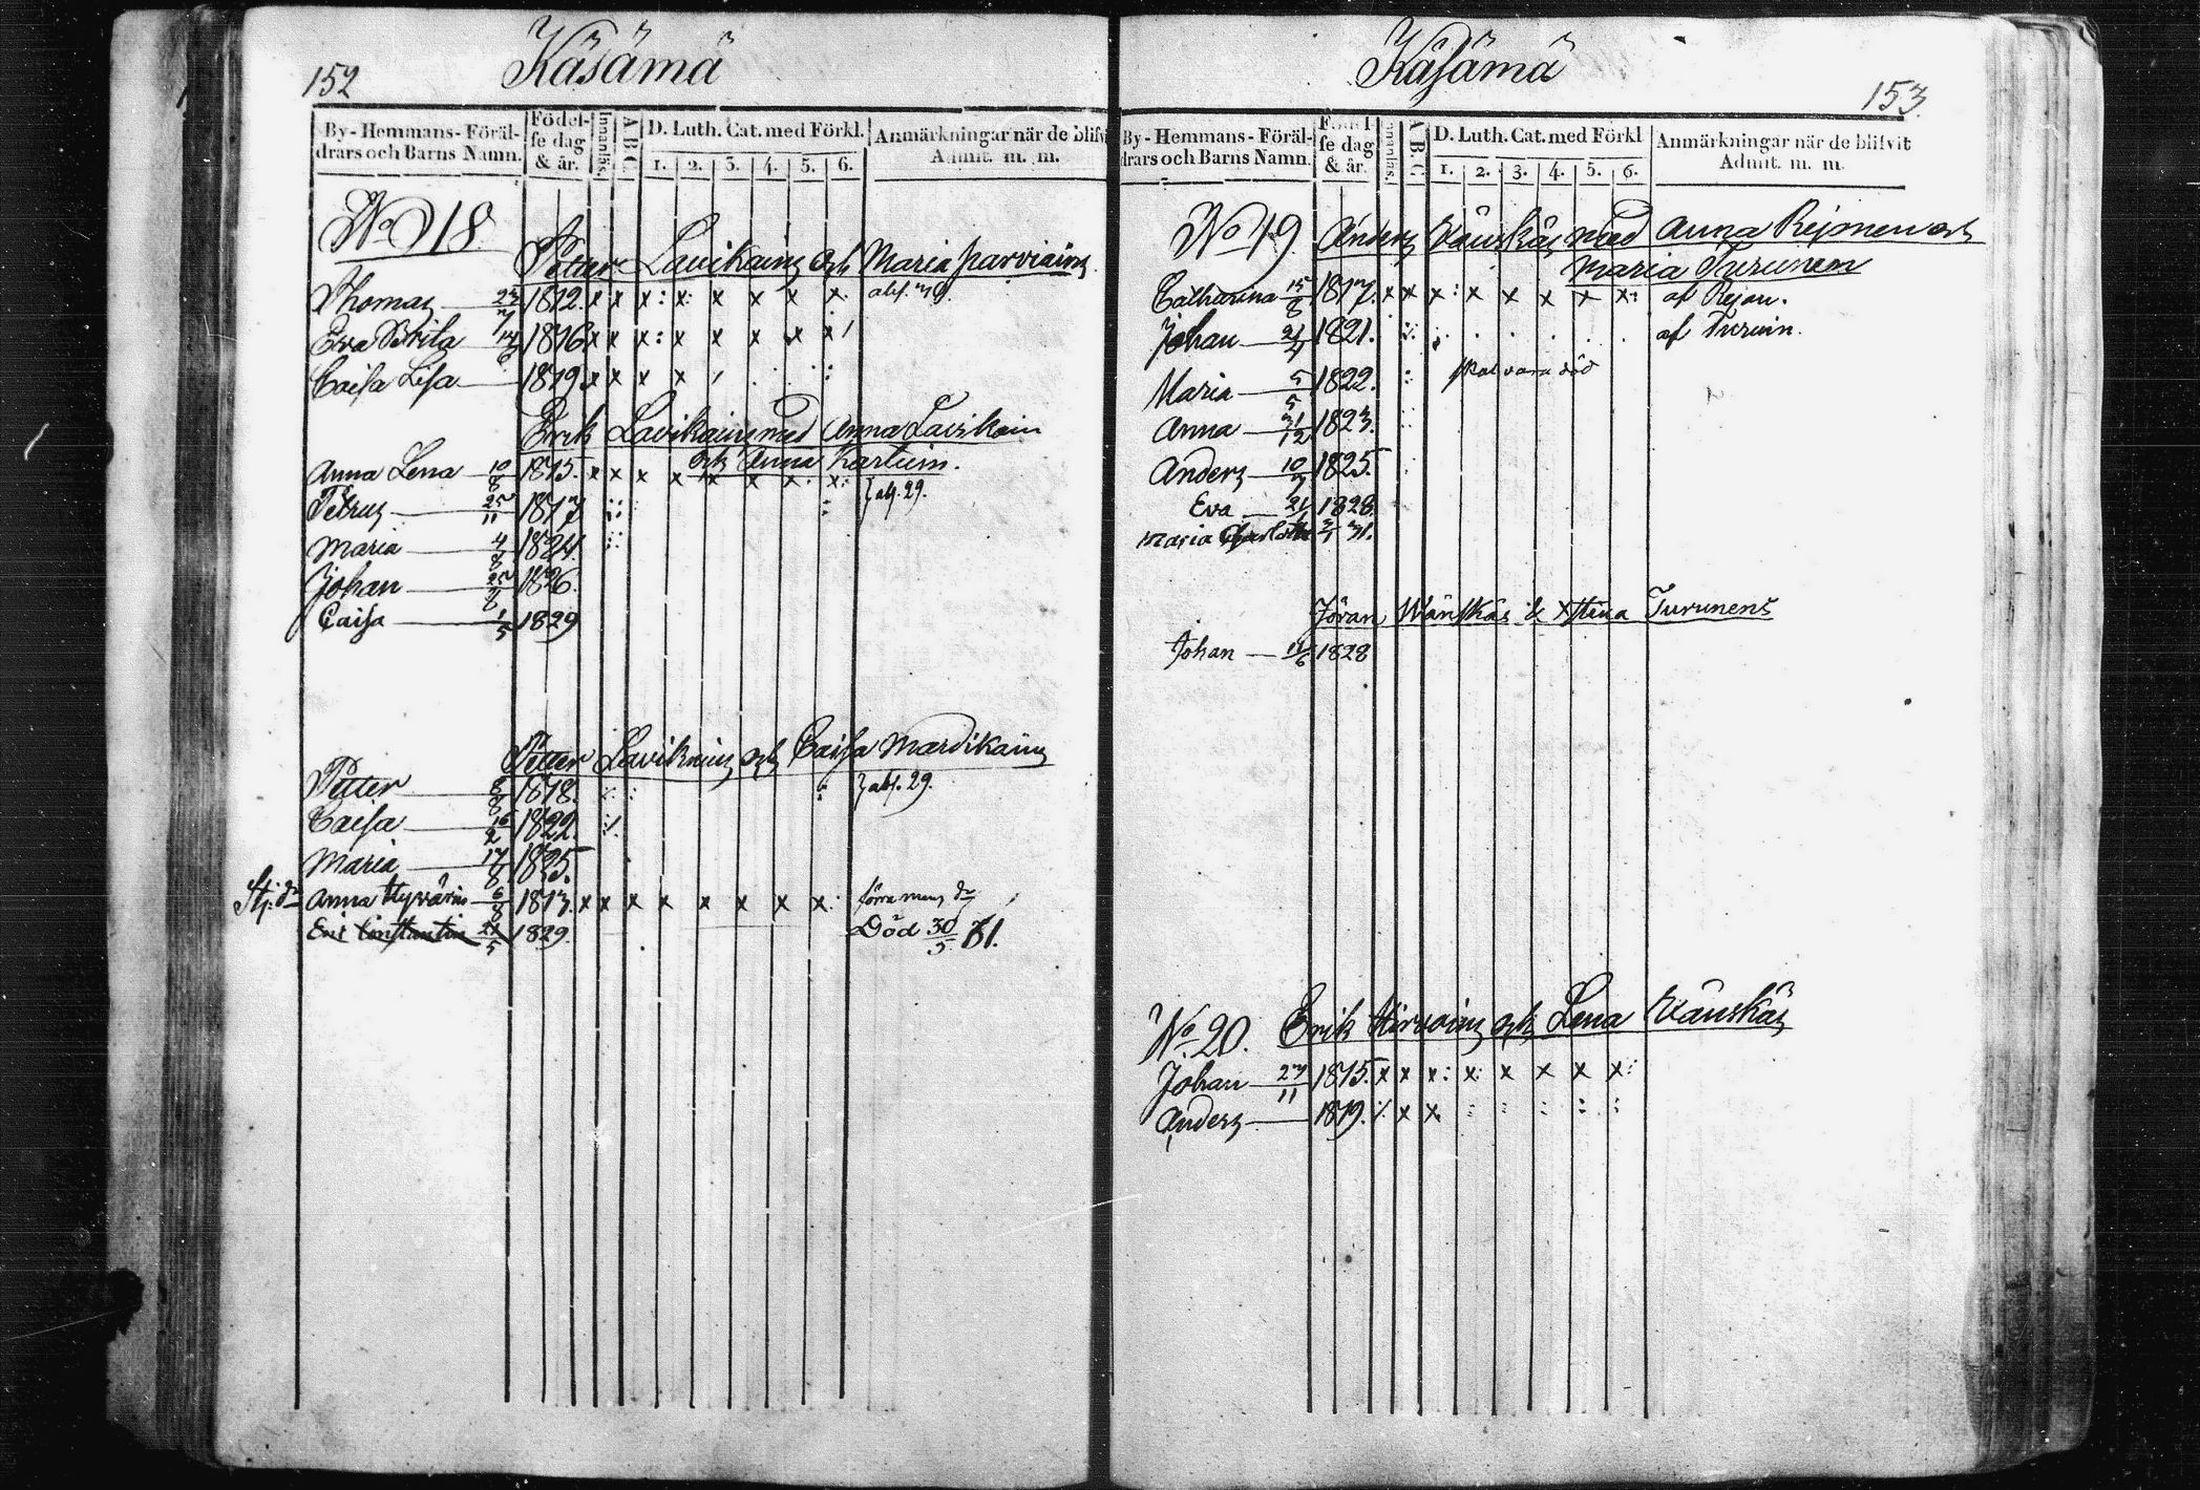 152
Käsämä
By-Hemmans-Föräl-
drars och Barns Namn.
Födel-
se dag
& år.
Innanläs.
A.B.C.
D. Luth. Cat. med Förkl.
1. 2. 3. 4. 5. 6.
Anmärkningar när de blifvit
Admit. m. m.
No 18
Petter Lavikainen och Maria Parviain
Thomas 1812. x x x: x: x x x x:
Eva Brita 1816 x x x: x x x x x
Caisa Lisa 1819 x x x x
Erik Lavikain med Anna Lavikain
och Anna
Anna Lena 10/8 1815. x x x x x x x x:
Petrus 25/11 1817
} abs. 29.
Maria 4/8 1824.
Johan 1826.
Caisa 1/5 1829
Petter Lavikain och Caisa
Petter 8/8 1818.
} abs. 29.
Caisa 16/2 1822.
Maria 17/8 1825.
Anna Hyvärin 6/8 1813. x x x x x x x x:
Eric Constantin 21/5 1829.
Död 30/5 31.
153.
Käsämä
By-Hemmans-Föräl-
drars och Barns Namn.
Födel-
se dag
& år.
Innanläs.
A.B.C.
D. Luth. Cat. med Förkl
1. 2. 3. 4. 5. 6.
Anmärkningar när de blifvit
Admit. m. m.
No 19. Anders Vänskäs med Anna Rejonen och
Maria Turunen
Catharina 15/8 1817. x x x: x x x x x: af Rejon.
Johan 1821. af Turuin.
Maria 5/5 1822. skal vara död
Anna 31/12 1823.
Anders 1825.
Eva 1828.
Maria 31.
Jöran Wänskäs & Xstina Turunens
Johan 1828
No 20. Erik Hirvoin och Lena Vänskäs
Johan 27/11 1815. x x x: x: x x x x:
Anders 1819. x x